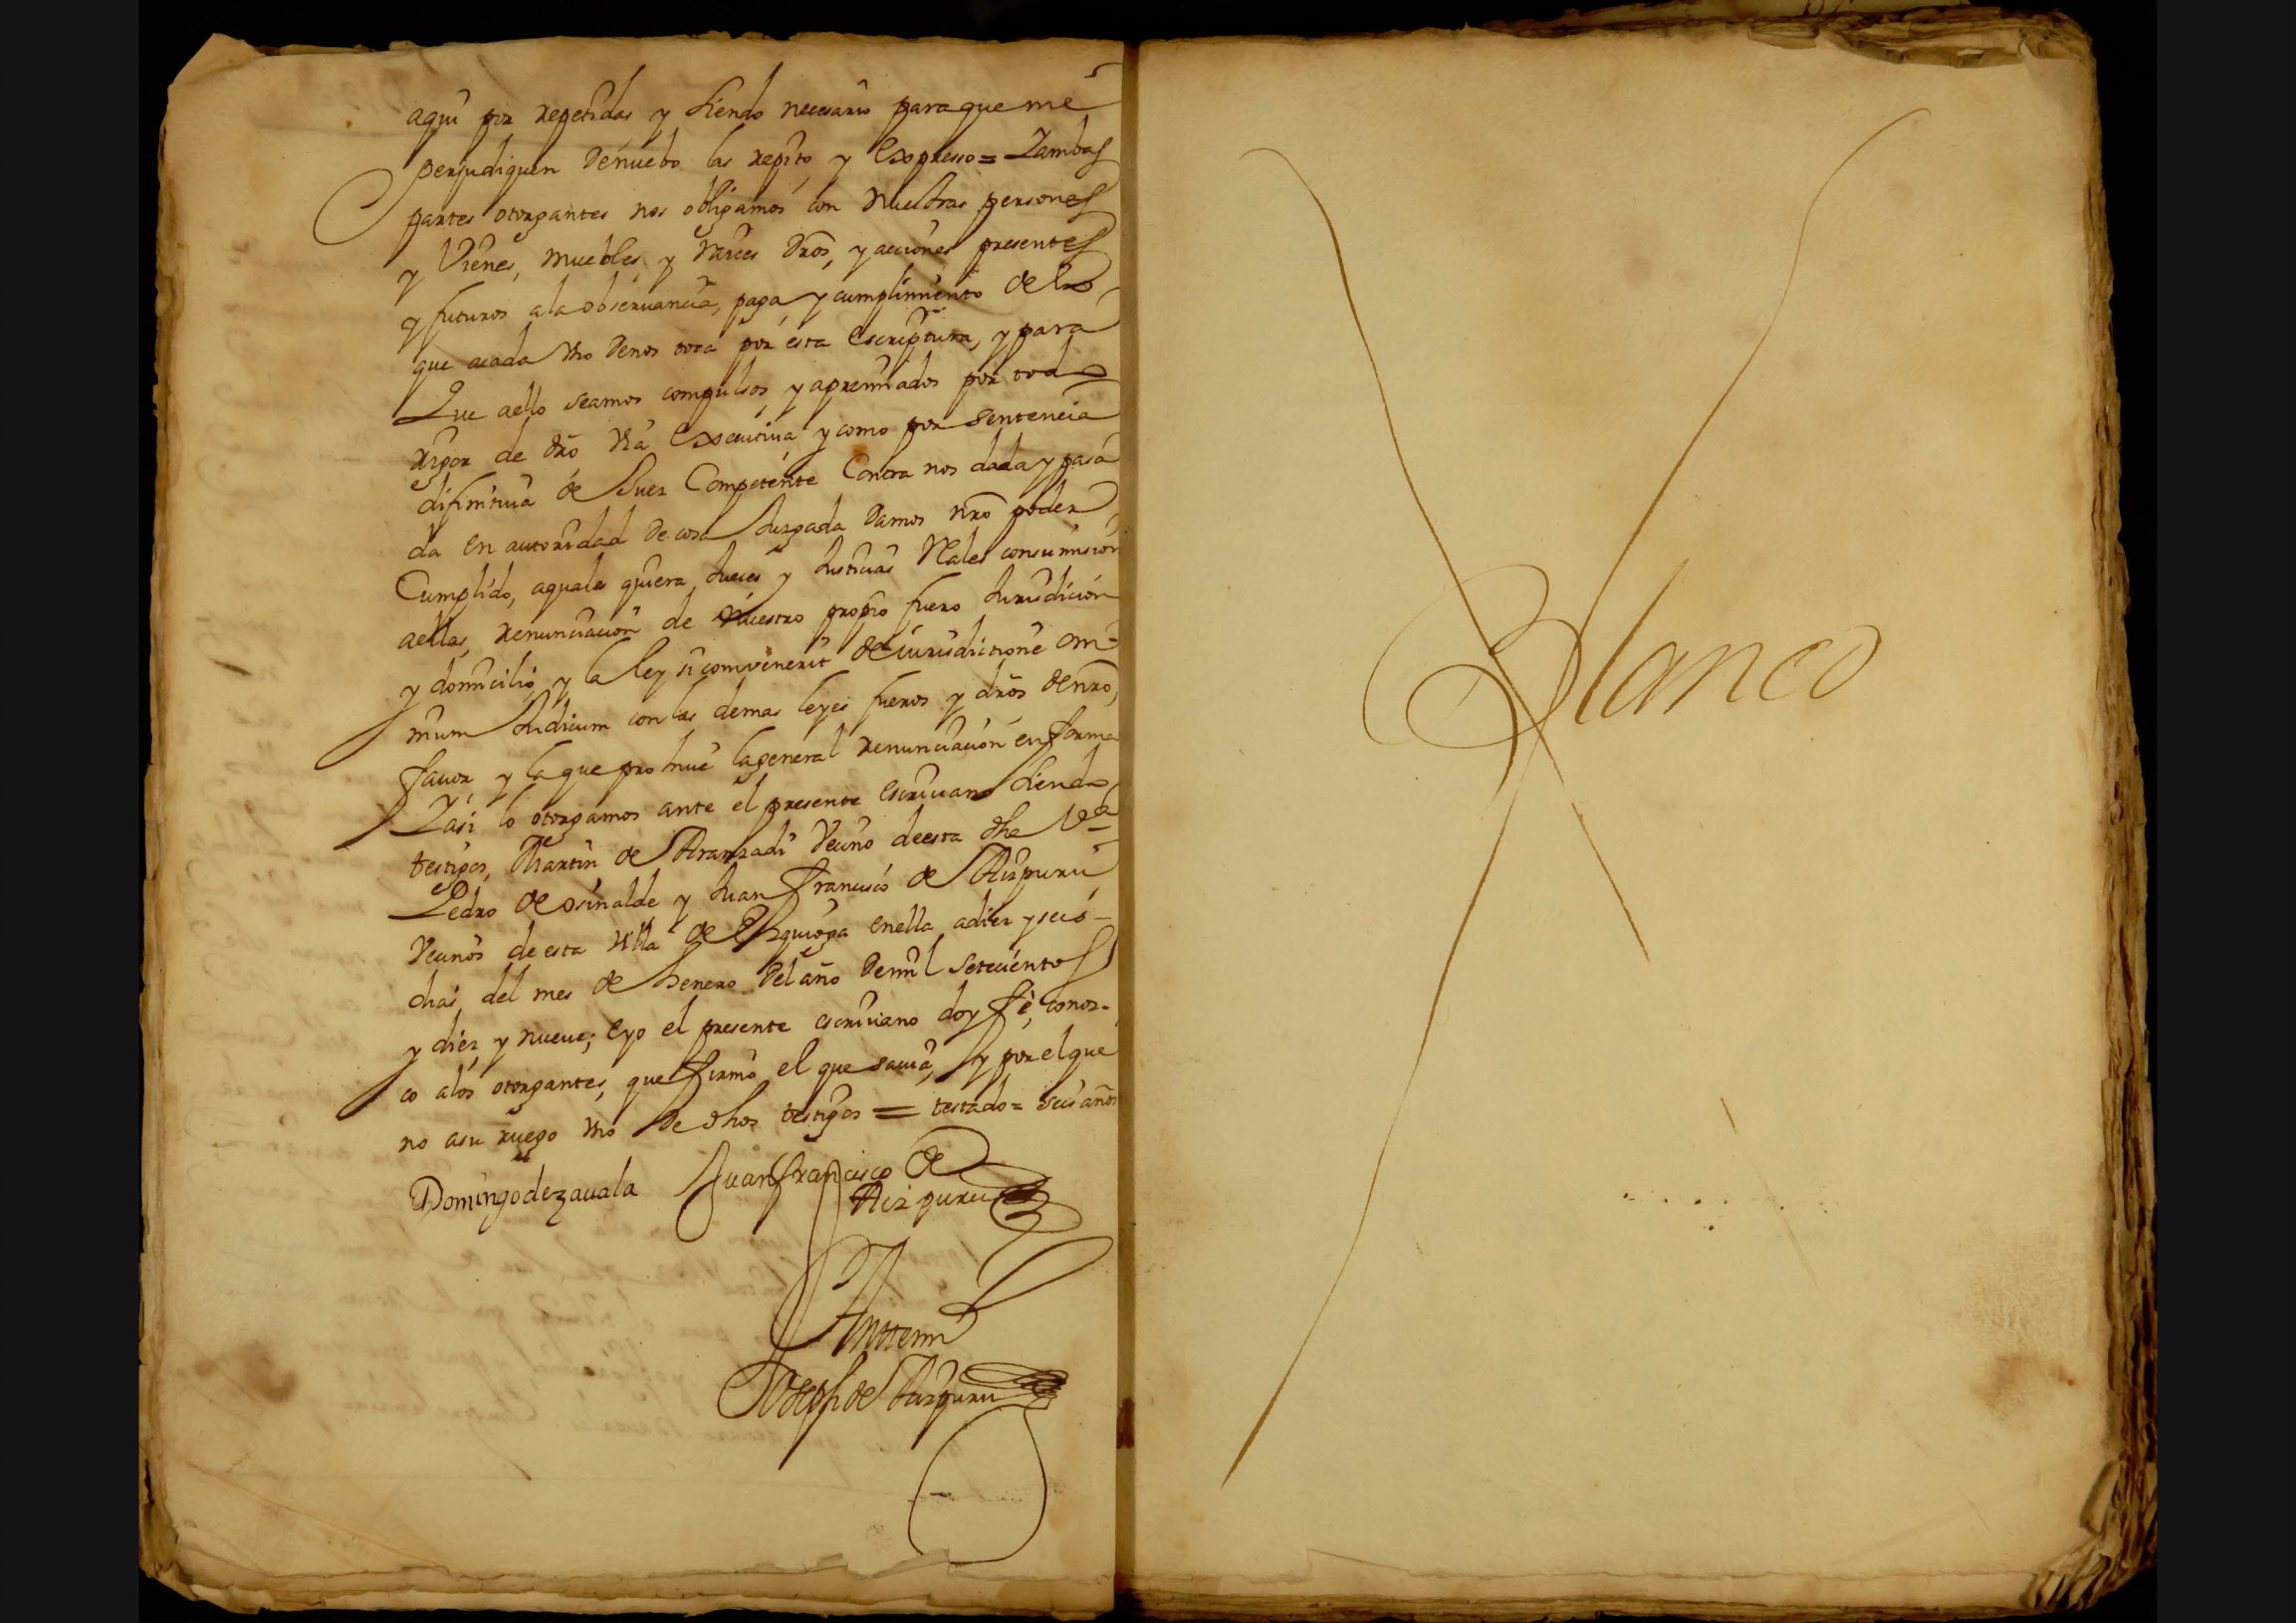 aqui por repetidas y siendo necesario para que me
perjudiquen de nuebo las repito, y expresso = Y ambas
partes otorgantes nos obligamos con nuestras personas
y vienes, muebles, y raices dros, y acciones presentes
y futuros a la observancia, paga, y cumplimiento de lo
que a cada vno de nos toca por esta escriptura, y para
Que a ello seamos compulsos, y apremiados por todo
rigor de dro via executiua y como por sentencia
difinitiua de Juez Competente Contra nos dada y pasa
da en autoridad de cosa Juzgada Damos nro poder
Cumplido, a quales quiera Jueces y Justicias Reales con sumision
a ellas, renunciacion de nuestro propio fuero Jurisdicion
y domicilio, y la ley si convenerit de iurisdictione om=
nium Judicum con las demas leyes fueros y dros de nro
fauor, y la que prohiue la general renunciacion en forma
Y asi lo otorgamos ante el presente escriuano siendo
testigos, Martin de Aranzadi Vecino de esta dha Va
Pedro de osinalde y Juan Francisco de Aizpuru
Vecinos de esta Villa de Ezquioga en ella a diez y seis
dias, del mes de henero del año de mil setecientos
y diez y nueue; e yo el presente escriuano doy fè, conoz-
co a los otorgantes, que firmò el que sauia, y por el que
no a su ruego vno de dhos testigos = testado = seis años
Domingo de zauala Juan francisco de
Aizpuru
Antemi
Joseph de Aizpuru
Blanco